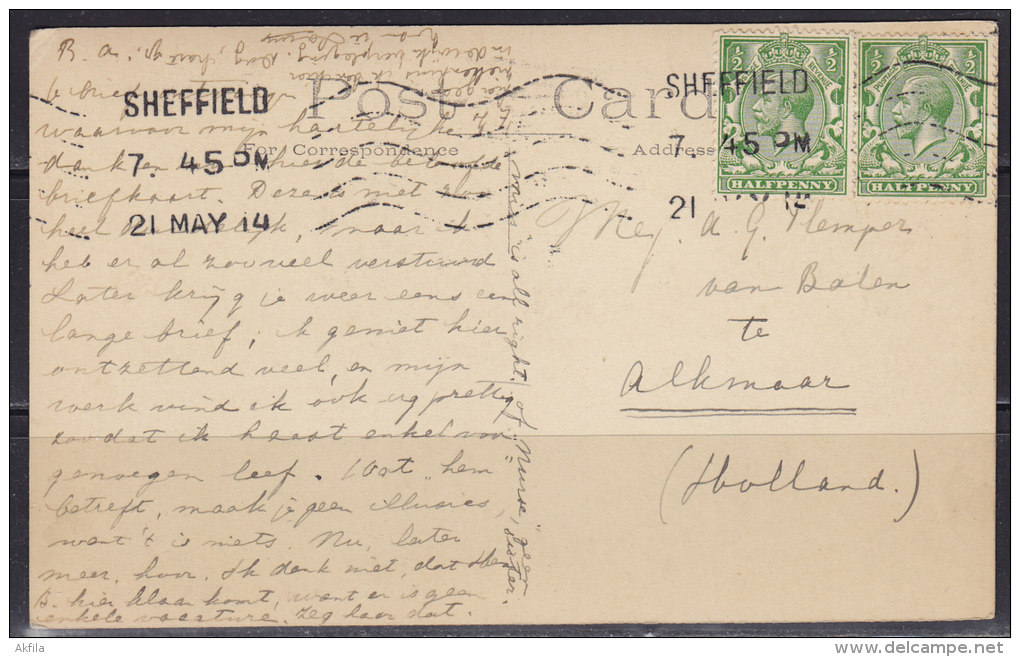 Post Card
For Correspondence
Address
SHEFFIELD
7. 45 PM
21 MAY 14
SHEFFIELD
7. 45 PM
21
½ ½
HALFPENNY
½ ½
HALFPENNY
B. a.
brief
waarvoor mijn hartelijke
dank en hier de beloofde
briefkaart. Deze is niet zoo
heel maar ik
heb er al zooveel verstuurd
Later krijg je weer eens een
lange brief; ik geniet hier
ontzettend veel, en mijn
werk vind ik ook erg prettig
zoodat ik haast enkel voor
genoegen leef. Wat "hem"
betreft, maak je geen illusies,
want 't is niets. Nu, later
meer, hoor. Ik denk niet, dat
B. hier klaar komt, want er is geen
enkele vacature. Zeg haar dat.
miss is all right, of "Nurse", geen
sister.
Mej. A. G. Kempers
van Balen
te
Alkmaar
(Holland.)
Akfila
delcampe.net